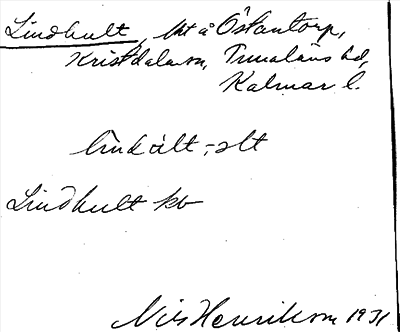 Lindhult, lht å Östantorp,
Kristdala sn, Tunaläns hd,
Kalmar l.
lìnd ält, -əlt
Lindhult kb
Nils Henrikson 1931